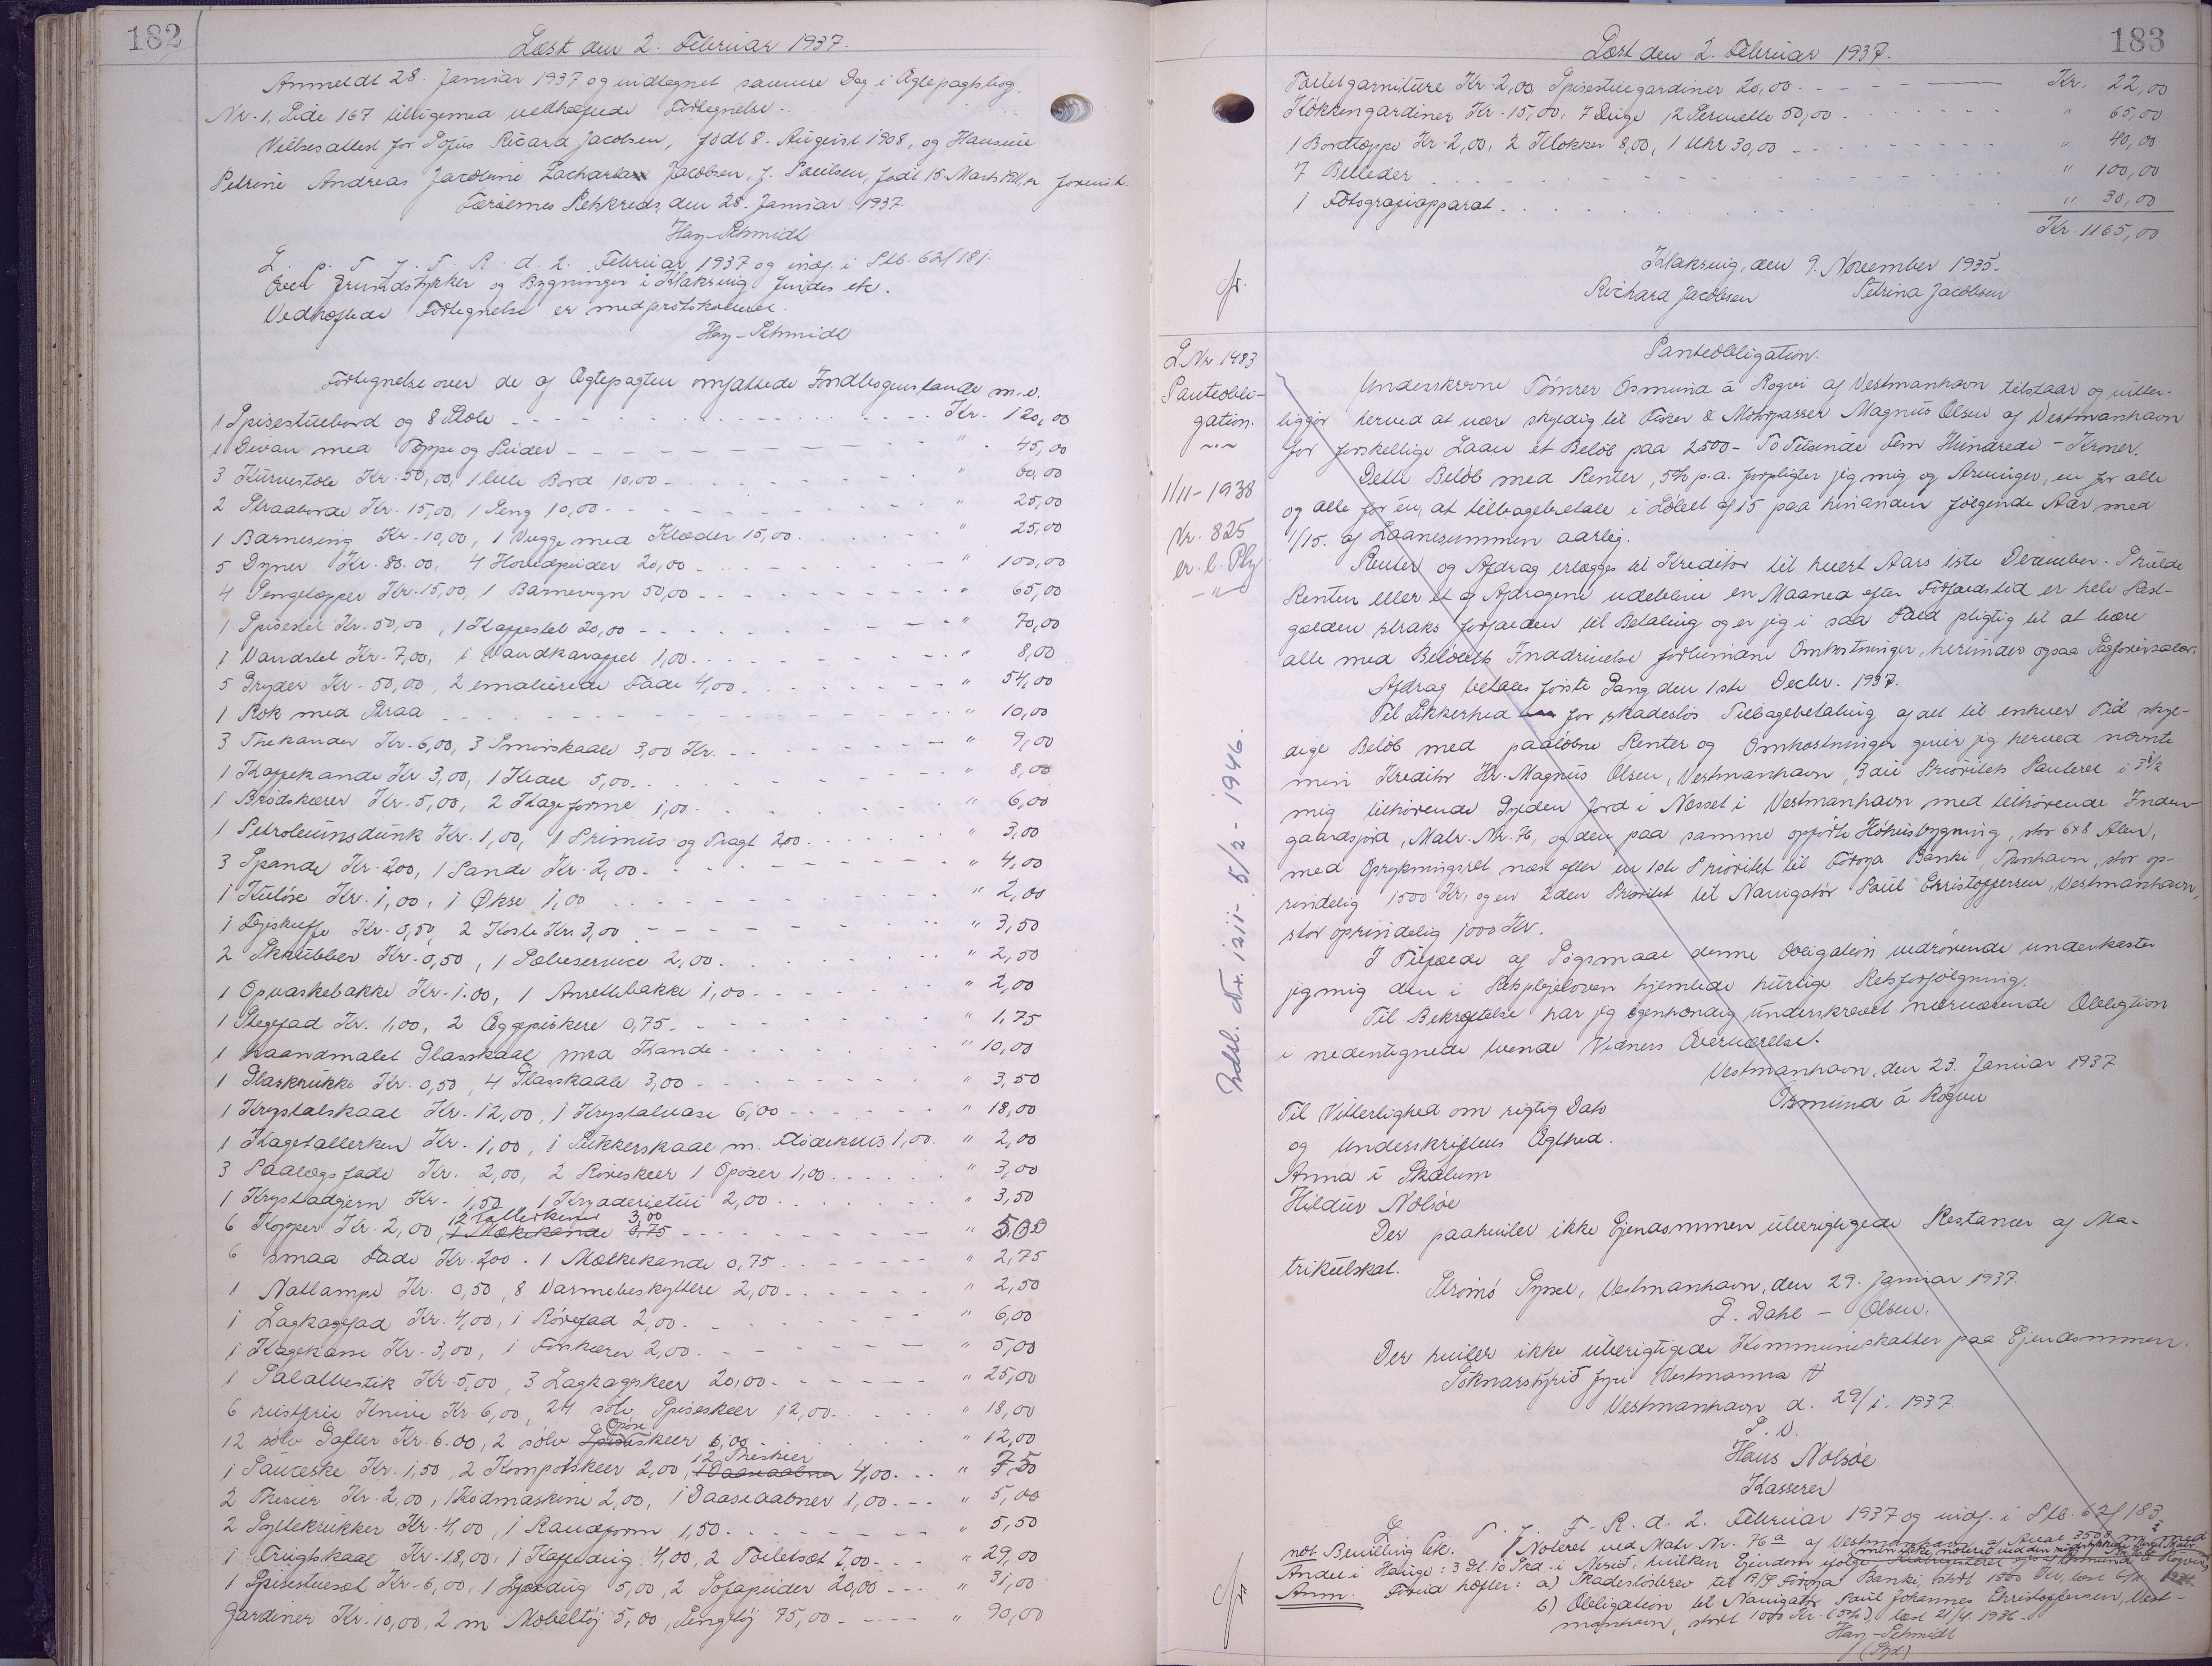 182
Læst den 2. Februar 1937.
Anmeldt 28. Januar 1937 og indtegnet samme Dag i Ægtepagtsbog
Nr. 1, Side 167 tilligemed vedhæftede Fortegnelse.
Vielsesattest for Sofus Ricard Jacobsen, født 8. August 1908, og Hansine
Petrine Andreas Jacobine Jacobsen, f. Poulsen, født 15. Marts er forevist.
Færøernes Retskreds, den 28. Januar 1937.
Hay-Schmidt
L. p. T. f. F. R. d. 2. Februar 1937 og indf. i Ptb. 62/181.
Grundstykker og Bygninger i Klaksvig findes ik.
Vedhæftede Fortegnelse er medprotokolleret.
Hay-Schmidt
Fortegnelse over de af Ægtepagten omfattede Indbogenstande m.v.
1 Spisestuebord og 8 Stole - - - Kr. 120,00
1 Divan med Tæppe og Puder - - - " 45,00
3 Kurvestole Kr. 50,00, 1 lille Bord 10,00 - - - " 60,00
2 Straaborde Kr. 15,00, 1 Seng 10,00 - - - " 25,00
1 Barneseng Kr. 10,00, 1 Vugge med Klæder 15,00 . . . " 25,00
5 Dyner Kr. 80.00, 4 Hovedpuder 20,00 - - - " 100,00
4 Sengetæpper Kr. 15,00, 1 Barnevogn 50,00 - - - " 65,00
1 Spisestel Kr. 50,00, 1 Kaffestel 20,00 - - - " 70,00
1 Vandstel Kr. 7,00, 1 Vandkaraffel 1,00 - - - " 8,00
5 Gryder Kr. 50,00, 2 emalierede Fade 4,00 - - - " 54,00
1 Rok med Straa - - - " 10,00
3 Thekander Kr. 6,00, 3 Smørskaale 3,00 Kr. - - - " 9,00
1 Kaffekande Kr. 3,00, 1 Kedel 5,00 - - - " 8,00
1 Brødskærer Kr. 5,00, 2 Kageforme 1,00 . . . " 6,00
1 Petroleumsdunk Kr. 1,00, 1 Primus og Tragt 2,00 . . . " 3,00
3 Spande Kr. 2,00, 1 Pande Kr. 2,00 - - - " 4,00
1 Kuløse Kr. 1,00, 1 Økse 1,00 . . . " 2,00
1 Fejeskuffe Kr. 0,50, 2 Koste Kr. 3,00 - - - " 3,50
2 Skrubber Kr. 0,50, 1 2,00 - - - " 2,50
1 Opvaskebakke Kr. 1.00, 1 Anrettebakke 1,00 - - - " 2,00
1 Stegefad Kr. 1,00, 2 Æggepiskere 0,75 - - - " 1,75
1 haandmalet Glasskaal med Kande - - - " 10,00
1 Glaskrukke Kr. 0,50, 4 Glasskaale 3,00 - - - " 3,50
1 Krystalskaal Kr. 12,00, 1 Krystalvase 6,00 - - - " 18,00
1 Kagetallerken Kr. 1,00, 1 Sukkerskaal m. 1,00. " 2,00
3 Paalægsfade Kr. 2,00, 2 Røreskeer 1 Øpser 1,00 . . . " 3,00
1 Kr. 1,50 1 Kryderietui 2,00 . . . " 3,50
6 Kopper Kr. 2,00, 12 Tallerkener 3,00 1 Mælkekande 0,75 - - - " 5,00
6 smaa Fade Kr. 2,00. 1 Mælkekande 0,75 . . . " 2,75
1 Natlampe Kr. 0,50, 8 Varmebeskyttere 2,00 - - - " 2,50
1 Lagkagefad Kr. 4,00, 1 Rørefad 2,00 - - - " 6,00
1 Kagekasse Kr. 3,00, 1 Forskærer 2,00 - - - " 5,00
1 Salatbestik Kr. 5,00, 3 Lagkageskeer 20,00 - - - " 25,00
6 rustfrie Knive Kr 6,00, 24 sølv Spiseskeer 12,00 - - - " 18,00
12 sølv Gafler Kr. 6.00, 2 sølv Øpse Spiseskeer 6,00 . . . " 12,00
1 Sauceske Kr. 1,50, 2 Kompotskeer 2,00, 12 Theskeer 1 Daaseaabner 4,00 . . . " 7,50
2 Thesier Kr. 2,00, 1 Kødmaskine 2,00, 1 Daaseaabner 1,00 - - - " 5,00
2 Syltekrukker Kr. 4,00, 1 Randform 1,50 - - - " 5,50
1 Frugtskaal Kr. 18,00, 1 Kaffedug 4,00, 2 Toiletsæt 7,00 - - - " 29,00
1 Spisestuesæt Kr. 6,00, 1 5,00, 2 Sofapuder 20,00 - - - " 31,00
Gardiner Kr. 10,00, 2 m Møbeltøj 5,00, Sengetøj 75,00 - - - " 90,00
183
Læst den 2. Februar 1937.
Toiletgarniture Kr. 2,00, Spisestuegardiner 20,00 - - - Kr. 22,00
Køkkengardiner Kr. 15,00, 7 Duge, 12 Serviette 50,00 - - - " 65,00
1 Bordtæppe Kr. 2,00, 2 Klokker 8,00, 1 Uhr 30,00 - - - " 40,00
7 Billeder - - - " 100,00
1 Fotografiapparat . . . " 30,00
Kr. 1165,00
Klaksvig, den 9. November 1935.
Richard Jacobsen Petrina Jacobsen
L Nr. 1483
Panteobli-
gation.
1/11-1938
Nr. 825
Udsl. Nr. 1211- 5/2 - 1946.
Panteobligation.
Underskrevne Tømrer Osmund á Rógvi af Vestmanhavn tilstaar og vitter-
liggør herved at være skyldig til Fisker & Motorpasser Magnus Olsen af Vestmanhavn
for forskellige Laan et Beløb paa 2500 - To Tusinde Fem Hundrede - Kroner.
Dette Beløb med Renter, 5% p.a. forpligter jeg mig og Arvinger, en for alle
og alle for én, at tilbagebetale i Løbet af 15 paa hinanden følgende Aar med
1/15. af Laanesummen aarlig.
Renter og Afdrag erlægges til Kreditor til hvert Aars 1ste December. Skulde
Renten eller et af Afdragene udeblive en Maaned efter Forfaldstid er hele Rest-
gælden straks forfalden til Betaling og er jeg i saa Fald pligtig til at bære
alle med Beløbets Inddrivelse forbundne Omkostninger, herunder ogsaa Sagførersalær.
Afdrag betales første Gang den 1ste Decbr. 1937.
Til Sikkerhed for skadesløs Tilbagebetaling af det til enhver Tid skyl-
dige Beløb med paaløbne Renter og Omkostninger giver jeg herved nævnte
min Kreditor Hr. Magnus Olsen, Vestmanhavn, 3die Prioritets Panteret i 3 1/2
mig tilhørende Gylden Jord i Nesset i Vestmanhavn med tilhørende Inden-
gaardsjord, Matr. Nr. 76, og den paa samme opførte Høhusbygning, stor 6x8 Alen,
med Oprykningsret næst efter en 1ste Prioritet til Føroya Banki, Thorshavn, stor op-
rindelig 1500 Kr. og en 2den Prioritet til Navigatør Poul Christoffersen, Vestmanhavn,
stor oprindelig 1000 Kr.
I Tilfælde af Søgsmaal denne Obligation vedrørende underkaster
jeg mig den i Retsplejeloven hjemlede hurtige Retsforfølgning.
Til Bekræftelse har jeg egenhændig underskrevet nærværende Obligation
i nedentegnede tvende Vidners Overværelse.
Vestmanhavn, den 23. Januar 1937.
Osmund á Rógvu
Til Vitterlighed om rigtig Dato
og Underskriftens Ægthed.
Anna i Skálum
Hildur Nolsøe
Der paahviler ikke Ejendommen uberigtigede Restancer af Ma-
trikulskat.
Strømø Syssel, Vestmanhavn, den 29. Januar 1937.
J. Dahl - Olsen.
Der hviler ikke uberigtigede Kommuneskatter paa Ejendommen.
Sóknarstýrið fyri Vestmanna
Vestmanhavn d. 29/1. 1937.
P. V.
Hans Nolsøe
Kasserer
L. T. f. F. R. d. 2. Februar 1937 og indf. i Ptb. 62/183,
not. Bevilling
Noteret ved Matr. Nr. 76a af Vestmanhavn af Areal 3508 m² med
Andel i Hauge: 3 Gl. 10 Skd. i Nesið, hvilken Ejendom
Anm. Forud hæfter: a) Skadesløsbrev til A/S Føroya Banki, stort 1500 Kr,
b) Obligation til Navigatør Poul Johannes Christoffersen, Vest-
manhavn, stort 1000 Kr. (5%), læst 21/4. 1936.
Hay-Schmidt